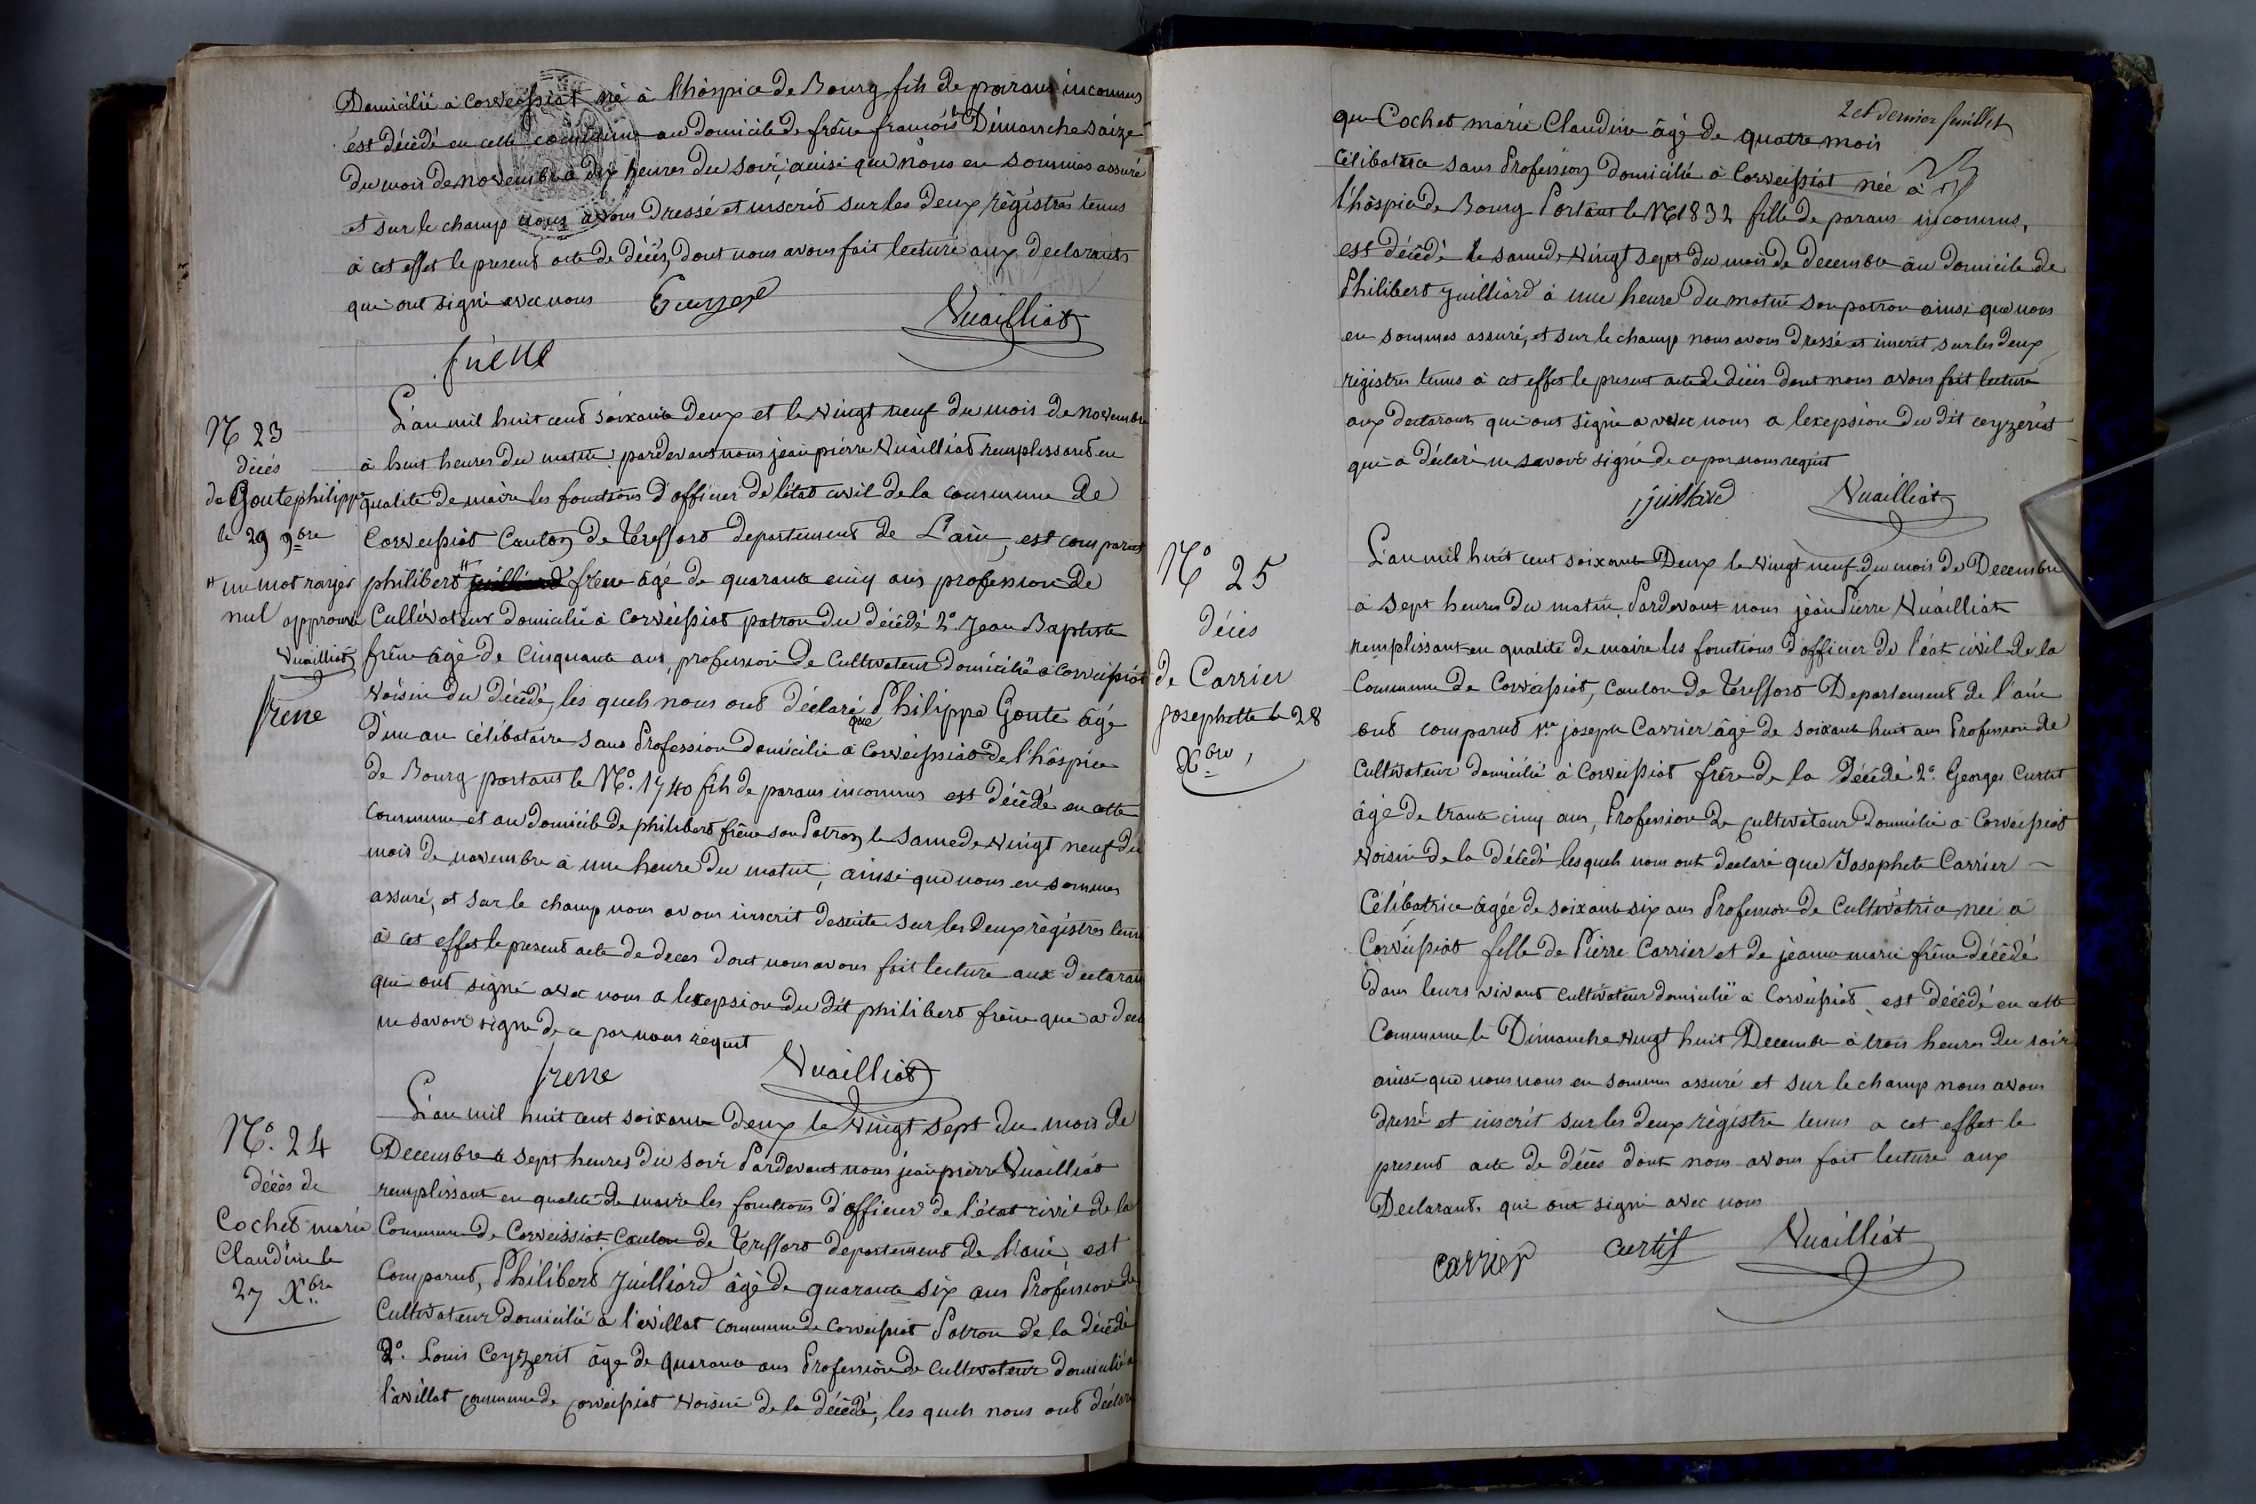 Domicilié à Corveissiat né à l'hôspice de Bourg fils de parans inconnus
est décédé en cette commune au domicile de frêne françois Dimanche saize
du mois de novembre à dix heures du soir, ainsi que nous en sommes assuré
et sur le champ nous avons Dressé et inscrit sur les deux règistres tenus
à cet effet le present acte de décès, dont nous avons fait lecture aux declarants
qui ont signé avec nous
Vuailliat
frêne
N 23
décés
de Goute philippe
le 29 9bre
" un mot rayer
nul approuvé
Vuailliat
frene
L'an mil huit cent soixante Deux et le vingt neuf du mois de novembre
à huit heures du matin pardevant nous jean pierre Vuailliat remplissant en
qualité de maire les fonctions d'officier de l'état civil de la commune de
Corveissiat Canton de Treffort departement de L'ain, est comparut
philibert " frêne âgé de quarante cinq ans profession de
Cultivateur Domicilié à Corveissiat patron du décédé 2° Jean Baptiste
frêne âgé de Cinquante ans, profession de Cultivateur Domicilié à Corveissiat
Voisin du Décédé, les quels nous ont déclaré que Philippe Goute âgé
D'un an célibataire sans Profession Domicilié à Corveissiat de l'hôspice
de Bourg portant le N°. 1740 fils de parans inconnus est décédé en cette
commune et au domicile de philibert frêne son Patron, le samedi vingt neuf du
mois de novembre à une heure du matin, ainsi que nous en sommes
assuré, et sur le champ nous avons inscrit desuite sur les Deux règistres tenu
à cet effet le present acte de deces dont nous avons fait lecture aux declaran
qui ont signé avec nous a lexepsion du dit philibert frêne qui a decl
ne savoir signé de ce par nous requit
frene Vuailliat
N°. 24
décès de
Cochet marie
Claudine le
27 Xbre
L'an mil huit cent soixante deux le vingt sept du mois de
Decembre à sept heures du soir Pardevant nous jean pierre Vuailliat
remplissant en qualité de maire les fonctions d'officier de l'état civil de la
Commune de Corveissiat, Canton de Treffort departement de l'ain, est
Comparut, Philibert Juilliard âgé de quarante six ans Profession de
Cultivateur Domicilié à l'avillat commune de Corveissiat Patron de la décédé
2°. Louis Ceyzerit âge de quarante ans Profession de Cultivateur Domicilié à
l'avillat commune de corveissiat Voisin de la décédé, les quels nous ont déclaré
2 et dernier feuillet
que Cochet marie Claudine âgé de quatre mois
Célibatrice sans Profession Domicilié à Corveissiat née à
l'hôspice de Bourg Portant le N° 1832 fille de parans inconnus,
est décédé le samedi vingt sept du mois de Decembre au domicile de
Philibert Juilliard à une heure du matin son patron ainsi que nous
en sommes assuré, et sur le champ nous avons Dressé et inscrit sur les deux
règistres tenus à cet effet le present acte de décès dont nous avons fait lecture
aux declarants qui ont signé a avec nous a lexepsion du dit ceyzeriat
qui a déclaré ne savoir signé de ce par nous requit
juilliard Vuailliat
N° 25
décès
de Carrier
Josephette le 28
Xbre,
L'an mil huit cent soixante Deux le vingt neuf du mois de Decembre
à sept heures du matin Pardevant nous jean Pierre Vuailliat
remplissant en qualité de maire les fonctions d'officier de l'état civil de la
Commune de Corveissiat, Canton de Treffort Departement de l'ain
ont comparut joseph Carrier âgé de soixante huit ans Profession de
Cultivateur domicilié à Corveissiat frère de la Décédé 2°. Georges Curtit
âgé de trante cinq ans, Profession de cultivateur Domicilié à Corveissiat
Voisin de la décédé lesquels nous ont declaré que Josephete Carrier ~
Célibatrice âgée de soixante six ans Profession de Cultivatrice neé à
Corveissiat fille de Pierre Carrier et de jeanne marie frêne décédé
Dans leurs vivant cultivateur domicilié à Corveissiat est décédé en cette
Commune le Dimanche vingt huit Decembre à trois heures du soir
ainsi que nous nous en sommes assuré et sur le champ nous avons
dressé et inscrit sur les deux règistre tenus a cet effet le
present acte de décès dont nous avons fait lecture aux
Declarants qui ont signé avec nous
carrier curtit Vuailliat